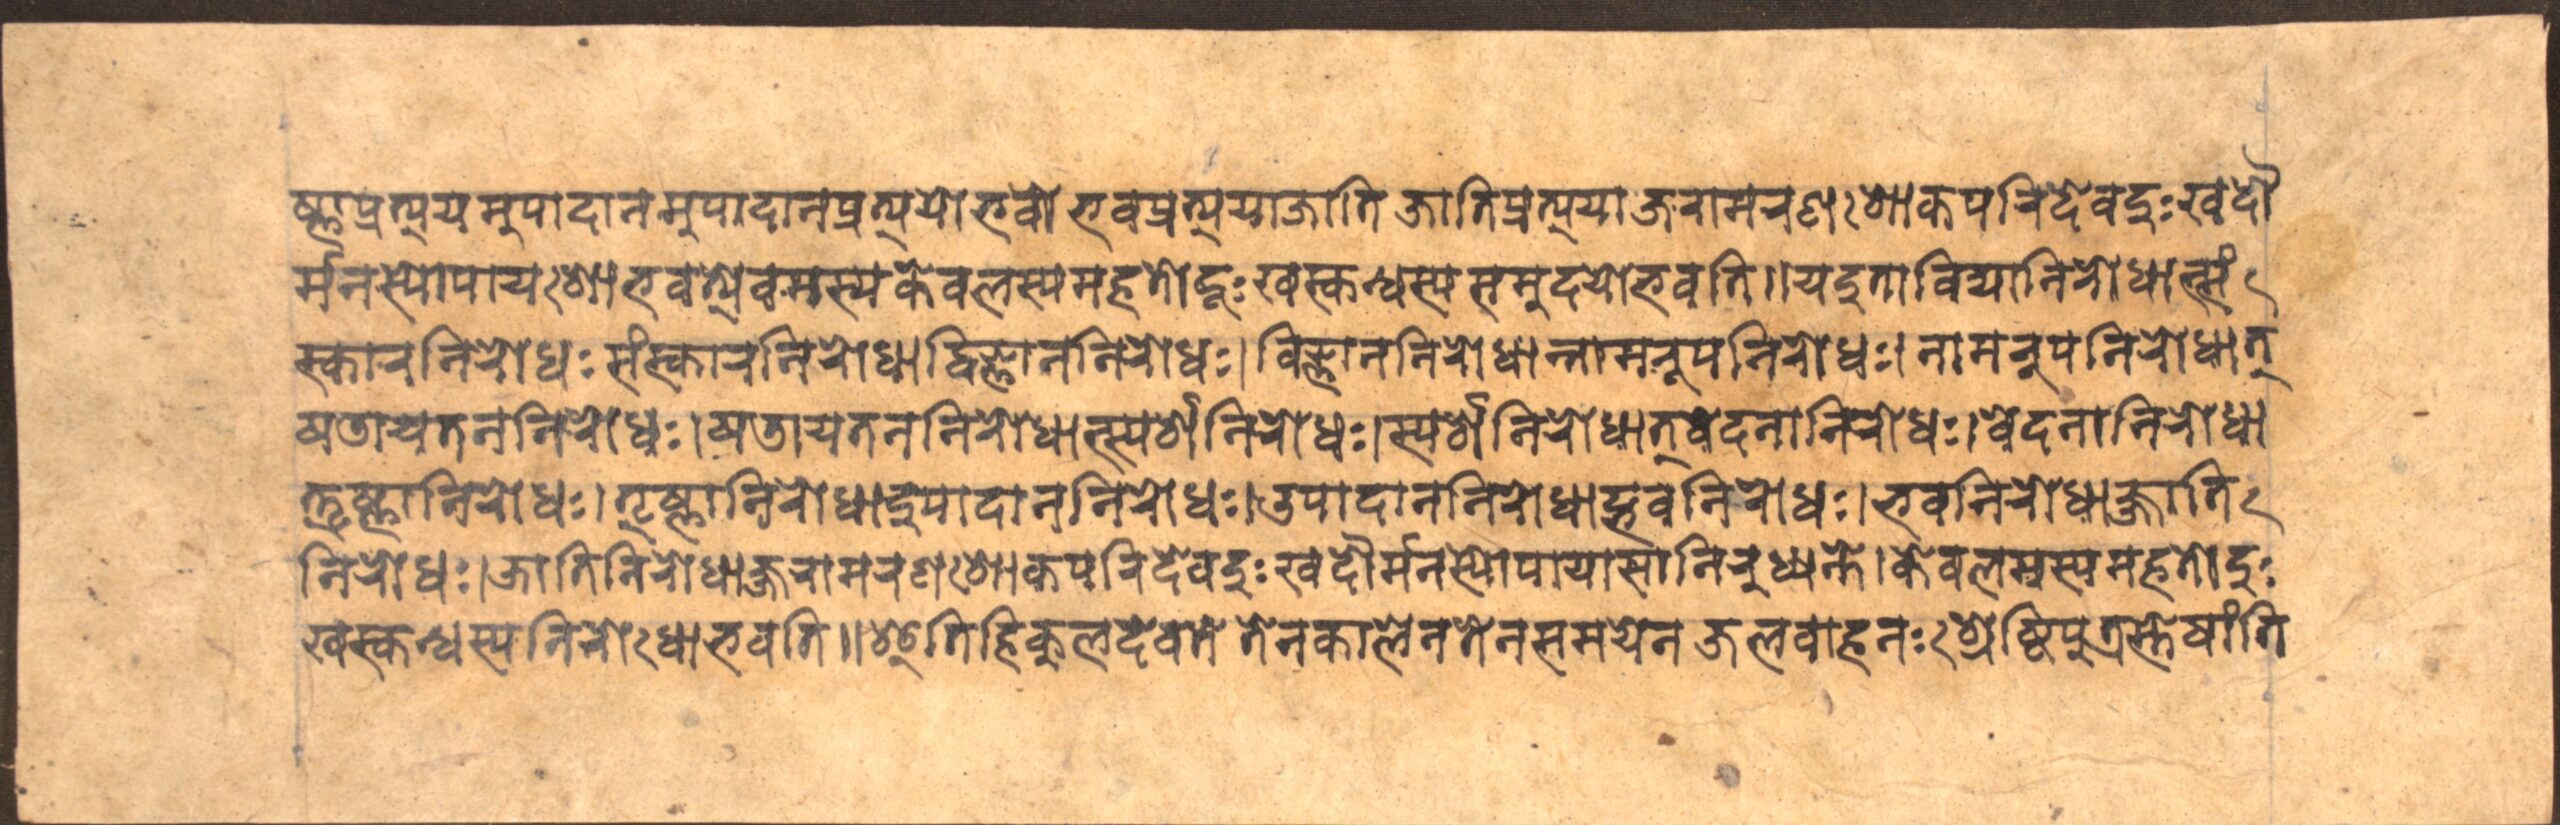 ष्णाप्रत्ययमुपादानमुपादानप्रत्ययो भवो भवप्रत्यया जाति जातिप्रत्यया जरामरणशोकपरिदेवदुःखदौ
र्मनस्योपायशो भवत्येवमस्य केवलस्य महतो दुःखस्कन्धस्य समुदयो भवति॥यदुताविद्यानिरोधात्सं
स्कारनिरोधः संस्कारनिरोधाद्विज्ञाननिरोधः।विज्ञाननिरोधान्नामरूपनिरोधः।नामरूपनिरोधात्
षडायतननिरोधः।षडायतननिरोधात्स्पर्शनिरोधः।स्पर्शनिरोधात्वेदनानिरोधः।वेदनानिरोधा
त्तृष्णानिरोधः।तृष्णानिरोधादुपादाननिरोधः।उपादाननिरोधाद्भवनिरोधः।भवनिरोधाज्जाति
निरोधः।जातिनिरोधाज्जरामरणशोकपरिदेवदुःखदौर्मनस्योपायासा निरुध्यन्ते।केवलमस्य महतो दुः
खस्कन्धस्य निरोधो भवति॥इति हि कुलदेवते तेन कालेन तेन समयेन जलवाहनः श्रेष्ठिपुत्रस्तेषां ति